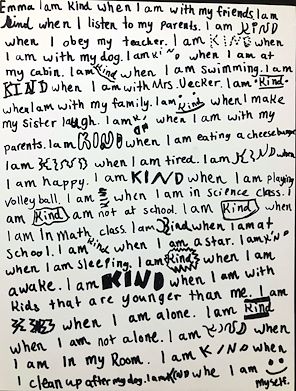 Emma I am Kind when I am with my friends. I am
kind when I listen to my parents. I am KIND
when I obey my teacher. I am KIND when
I am with my dog. I am KIND when I am at
my cabin. I am Kind when I am swimming. I am
KIND when I am with Mrs. Uecker. I am Kind
when I am with my family. I am Kind when I make
my sister laugh. I am kind when I am with my
parents. I am KIND when I am eating a cheeseburger
I am KIND when I am tired. I am KIND when
I am happy. I am KIND when I am playing
volleyball. I am when I am in science class. I
am Kind am not at school. I am Kind when
I am In Math class. I am Kind when I am at
School. I am Kind when I am a star. I am KIND
when I am sleeping. I am KIND when I am
awake. I am KIND when I am with
Kids that are younger than me. I am
when I am alone. I am Kind
when I am not alone. I am KIND when
I am In my Room. I am KIND when
I clean up after my dog. I am KIND whe I am
myself.